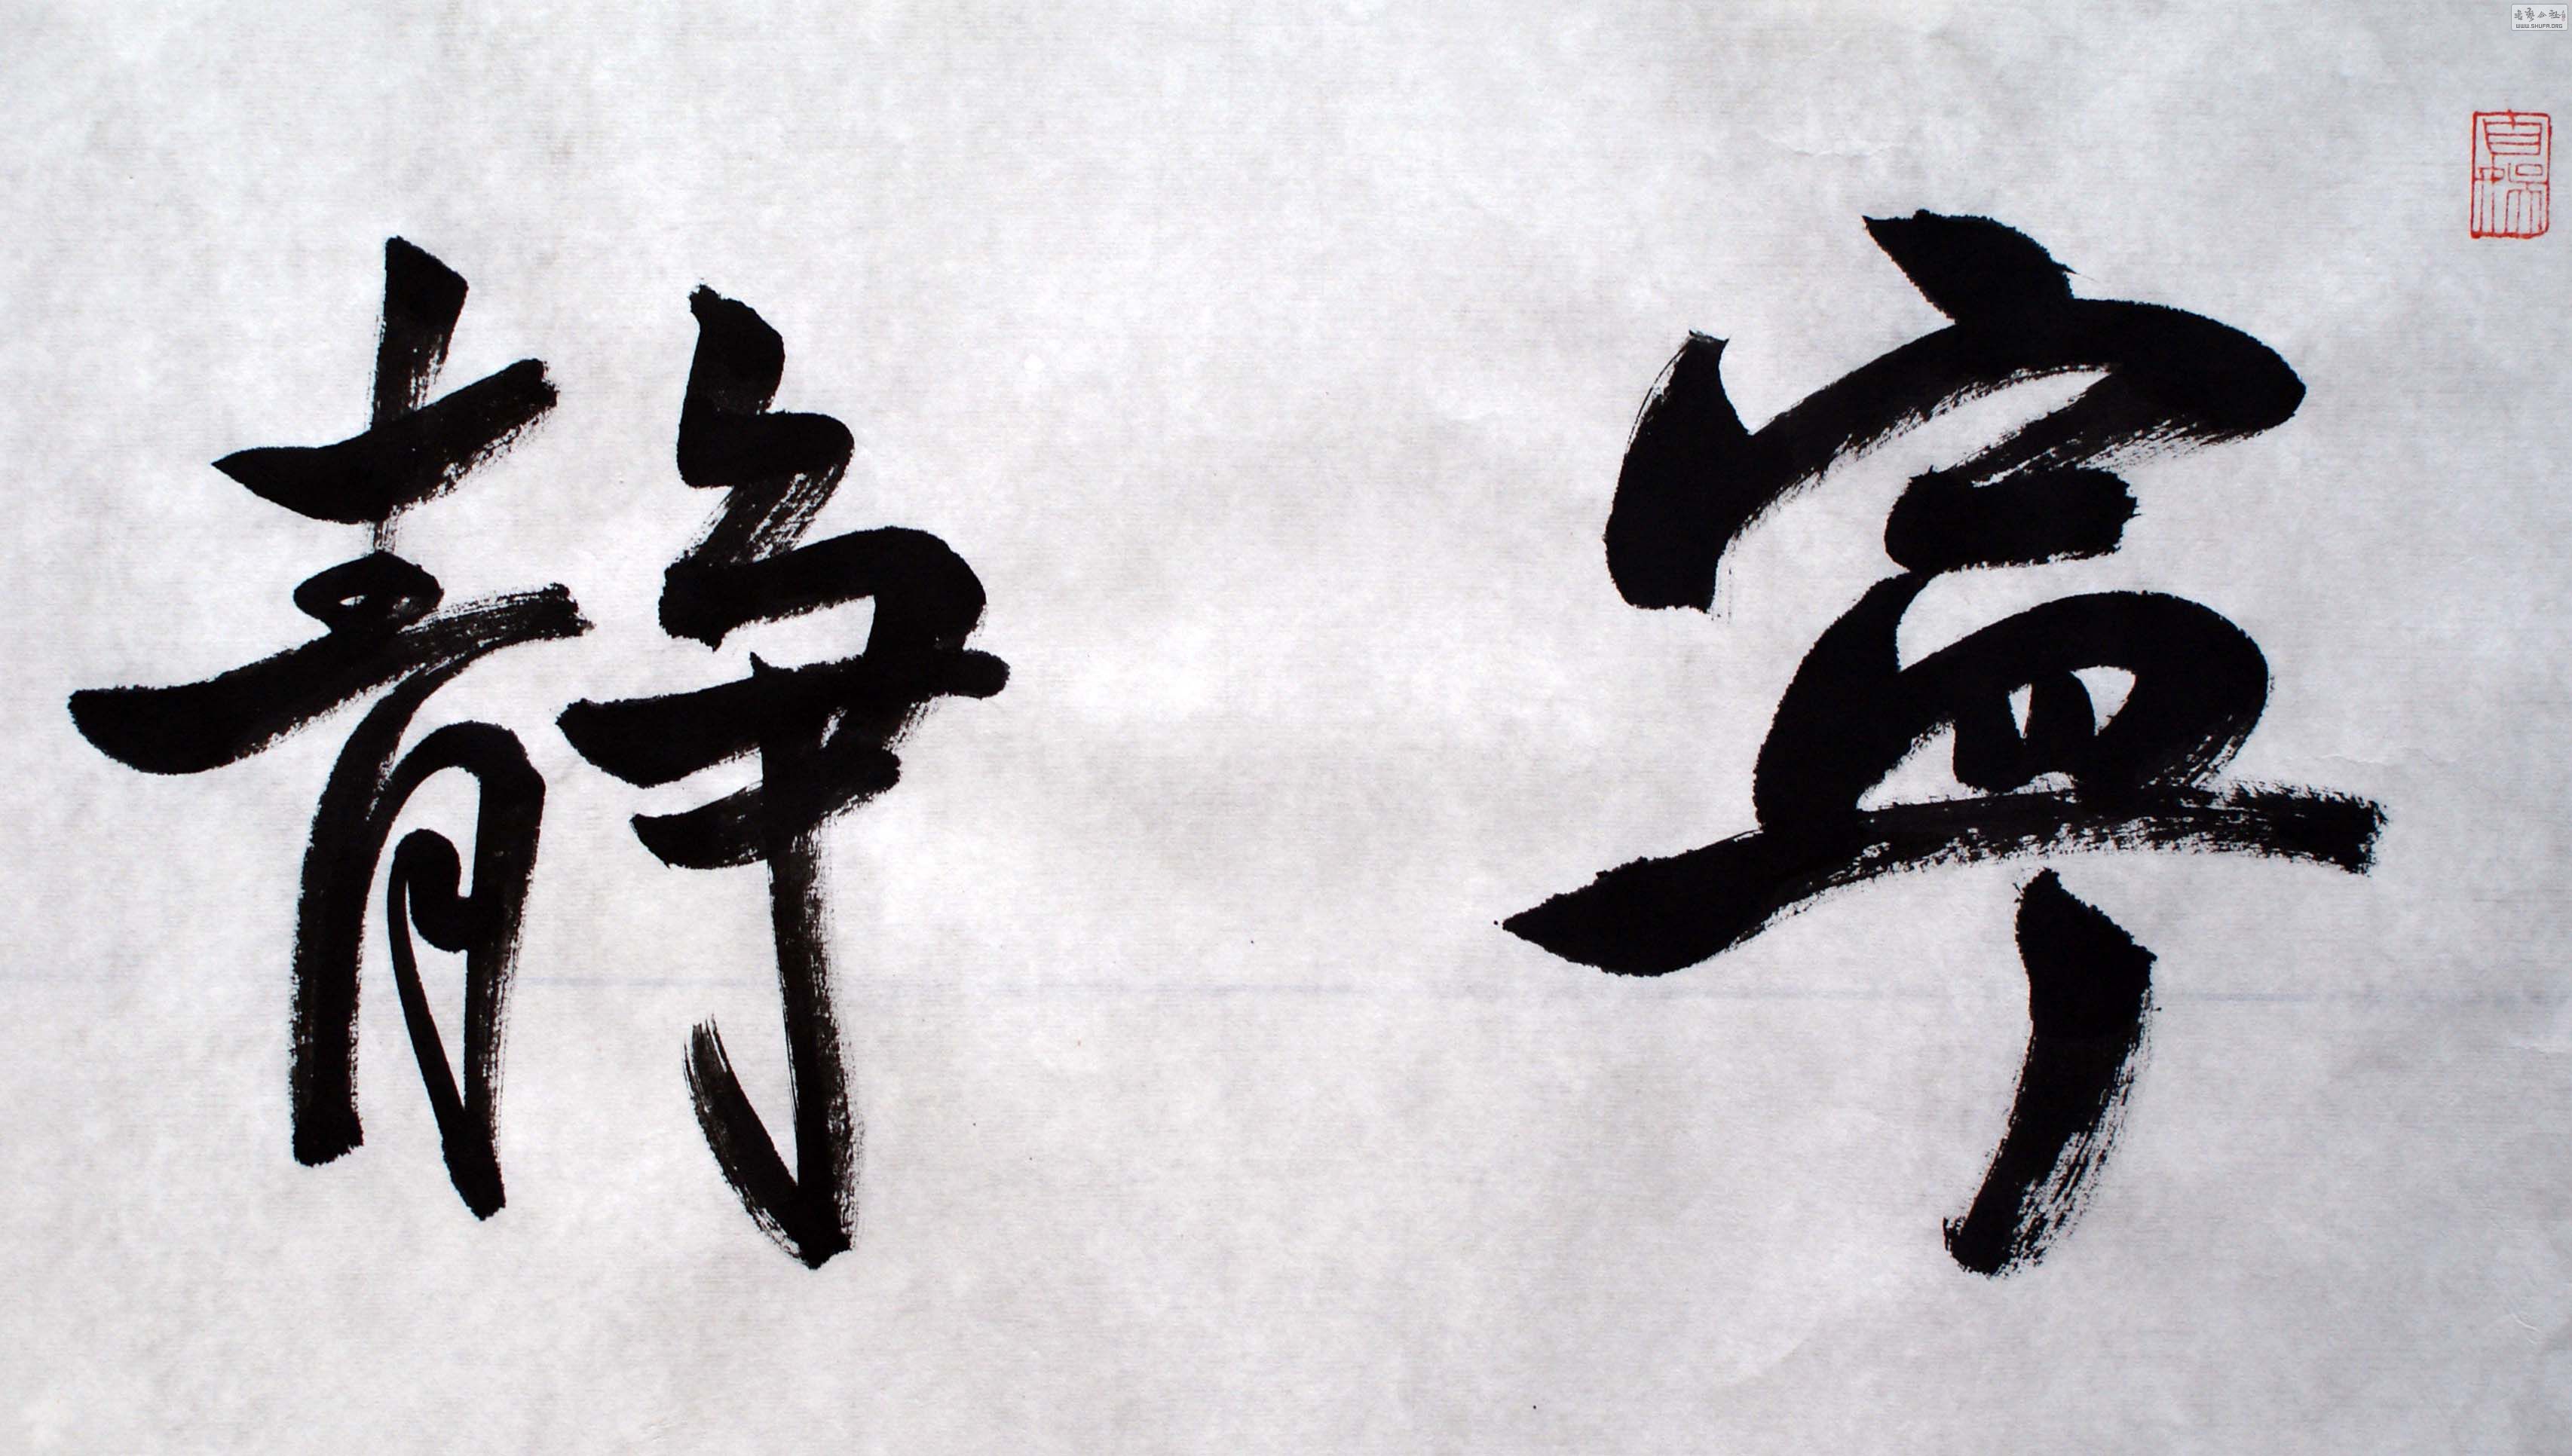 寧静
WWW.SHUFA.ORG